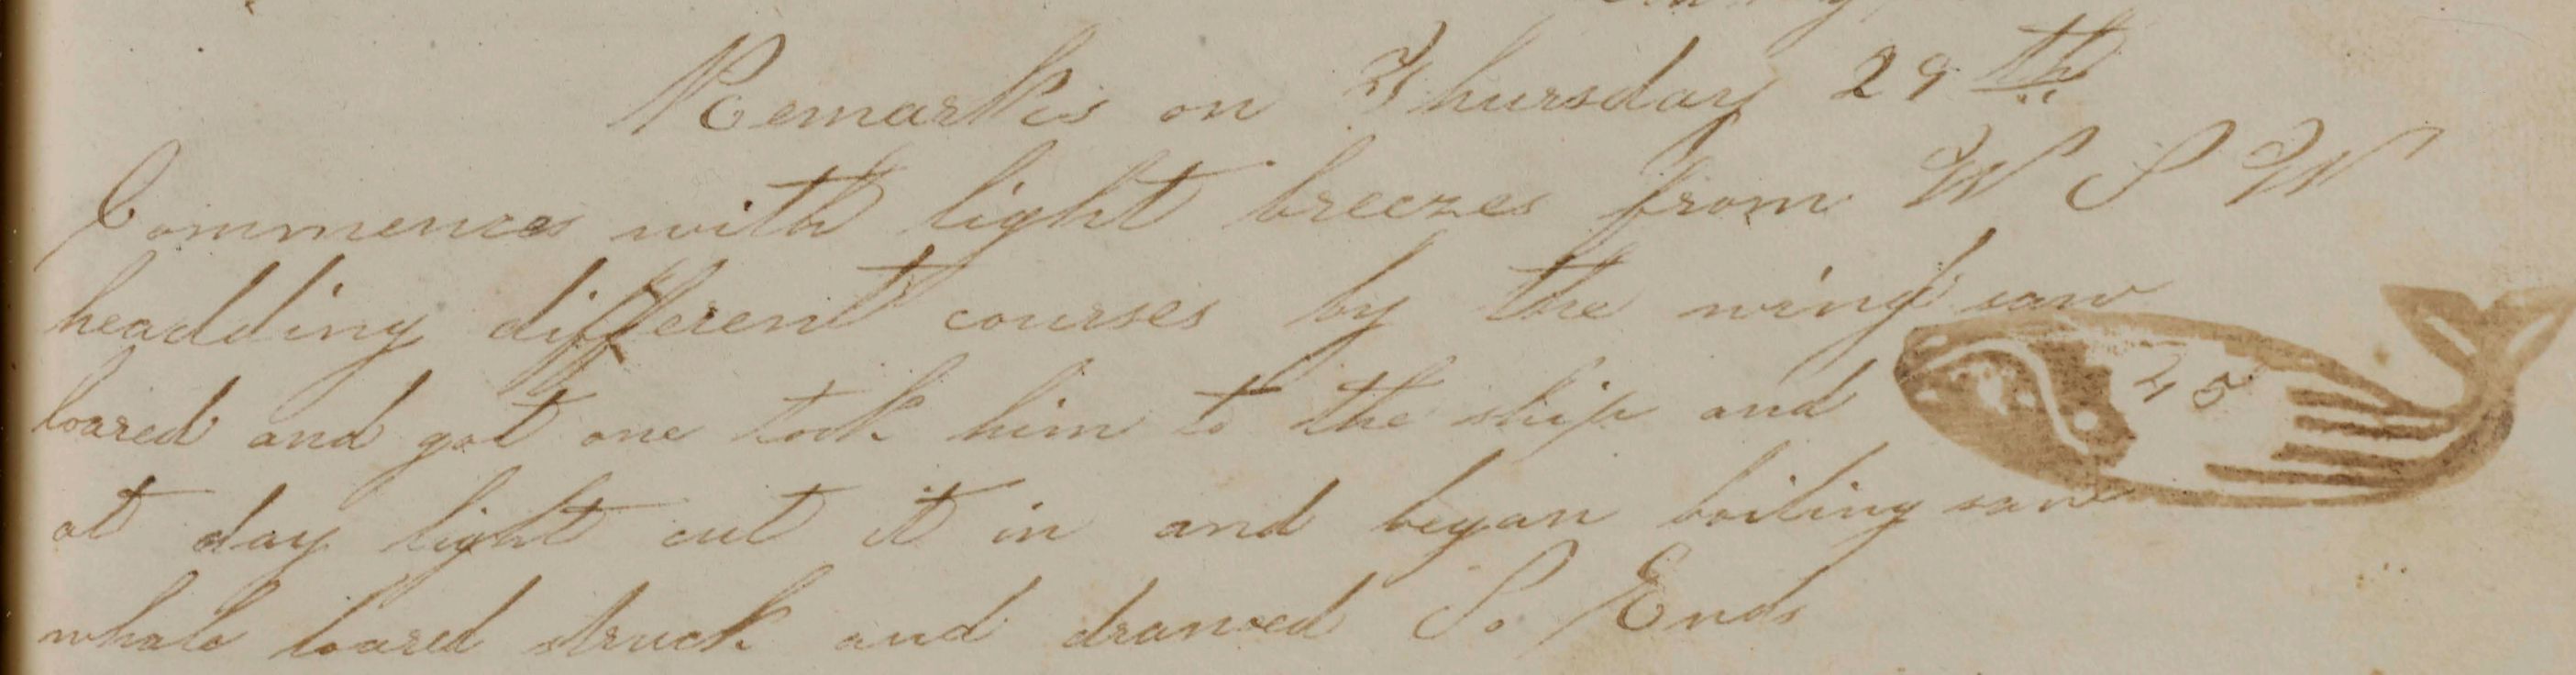 Remarks on Thursday 29th
Commences with light breezes from W S W
headding different courses by the wind saw
loared and got one took him to the ship and
45
at day light cut it in and began boiling saw
whale loared struck and drawed So Ends